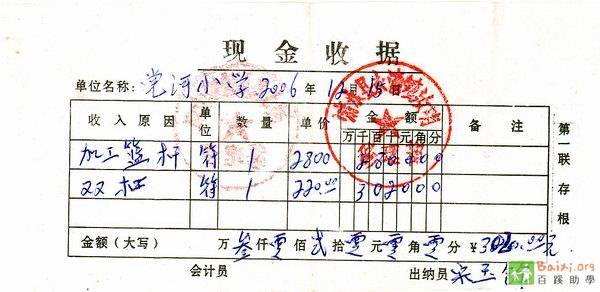 现金收据
单位名称：党河小学 2006 年 12 月 15 日
收入原因 单位 数量 单价 金额 备注
万 千 百 十 元 角 分
加工篮杆 1 2800
双杠 1 220.00 302000
金额（大写） 万 叁 仟 零 佰 贰 拾 零 元 零 角 零 分 ¥3020.00元
会计员 出纳员
第一联 存根
Baixi.org
百蹊助學